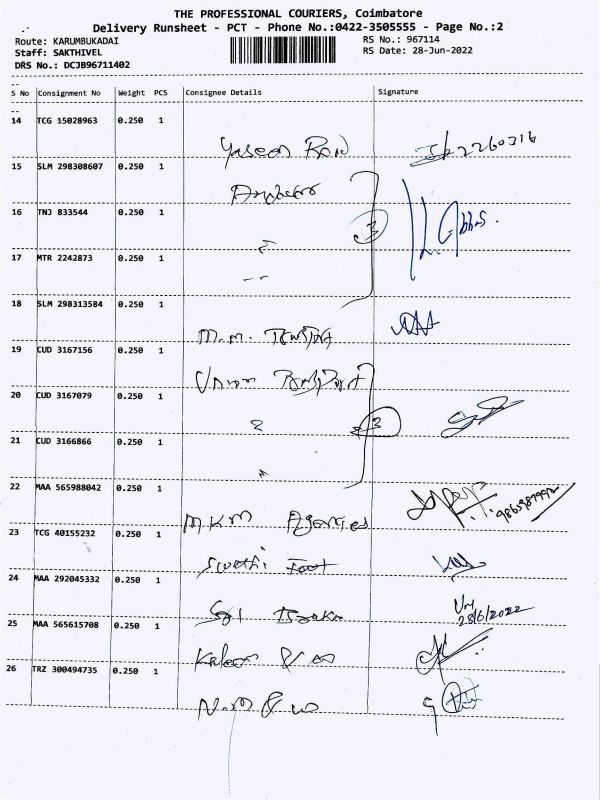 THE PROFESSIONAL COURIERS, Coimbatore
Delivery Runsheet - PCT - Phone No.:0422-3505555 - Page No.:2
Route: KARUMBUKADAI
RS No.: 967114
Staff: SAKTHIVEL
RS Date: 28-Jun-2022
DRS No.: DCJB96711402
S No Consignment No Weight PCS Consignee Details Signature
14 TCG 15028963 0.250 1
15 SLM 298308607 0.250 1
16 TNJ 833544 0.250 1
3
17 MTR 2242873 0.250 1
18 SLM 298313584 0.250 1
M.M.
19 CUD 3167156 0.250 1
Union
20 CUD 3167079 0.250 1
3
21 CUD 3166866 0.250 1
22 MAA 565988042 0.250 1
MKM Agencies
23 TCG 40155232 0.250 1
Swathi Foot
24 MAA 292045332 0.250 1
28/6/2022
25 MAA 565615708 0.250 1
Kaleem & co
26 TRZ 300494735 0.250 1
N.M & co